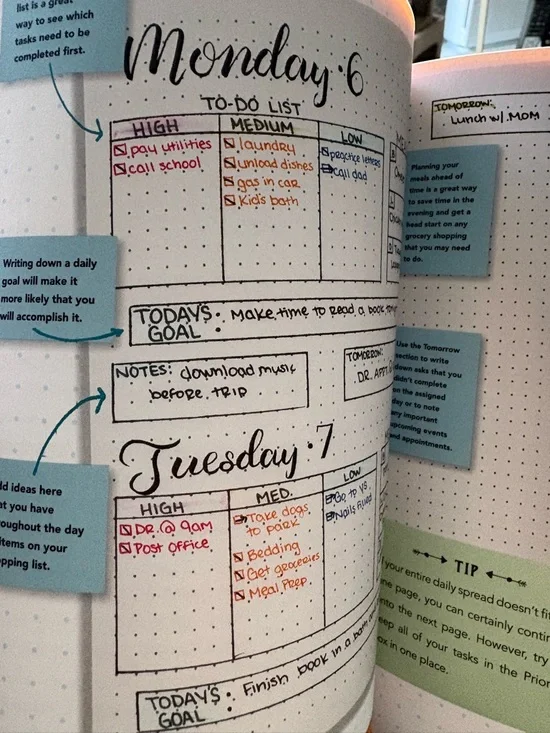 list is a great
way to see which
tasks need to be
completed first.
Monday · 6
TO-DO LIST
HIGH
pay utilities
call school
MEDIUM
laundry
unload dishes
gas in car
Kid's bath
LOW
practice letters
call dad
TODAY'S GOAL: Make time to read a book
Writing down a daily
goal will make it
more likely that you
will accomplish it.
NOTES: download music
before TRIP
TOMORROW:
DR. APPT.
Tuesday · 7
HIGH
DR. @ 9am
Post Office
MED.
Take dogs
to park
Bedding
Get groceries
Meal Prep.
LOW
Go to YS.
Nails Filled
TODAY'S GOAL: Finish book in a
ideas here
you have
throughout the day
items on your
shopping list.
TOMORROW:
Lunch w/ MOM
Planning your
meals ahead of
time is a great way
to save time in the
evening and get a
head start on any
grocery shopping
that you may need
to do.
Use the Tomorrow
section to write
down asks that you
didn't complete
on the assigned
day or to note
any important
upcoming events
and appointments.
TIP
your entire daily spread doesn't fit
page, you can certainly
into the next page. However, try
keep all of your tasks in the
box in one place.